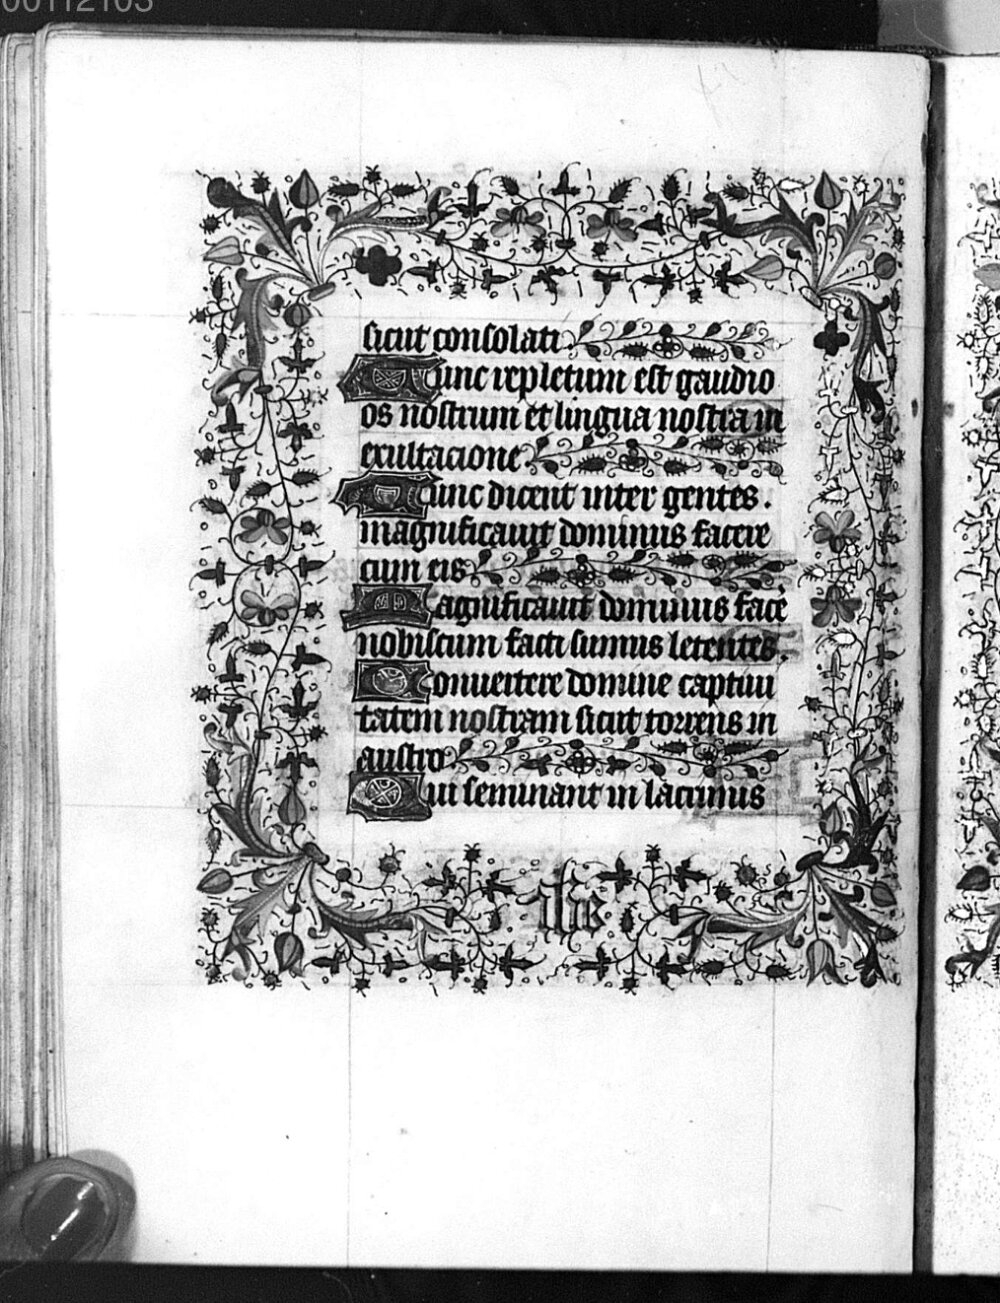 00112103
sicut consolati
Tunc repletum est gaudio
os nostrum et lingua nostra in
exultacione
Tunc dicent inter gentes.
magnificauit dominus facere
cum eis
Magnificauit dominus facẽ
nobiscum facti sumus letentes.
Conuertere domine captiui
tatem nostram sicut torrens in
austro
Qui seminant in lacrimis